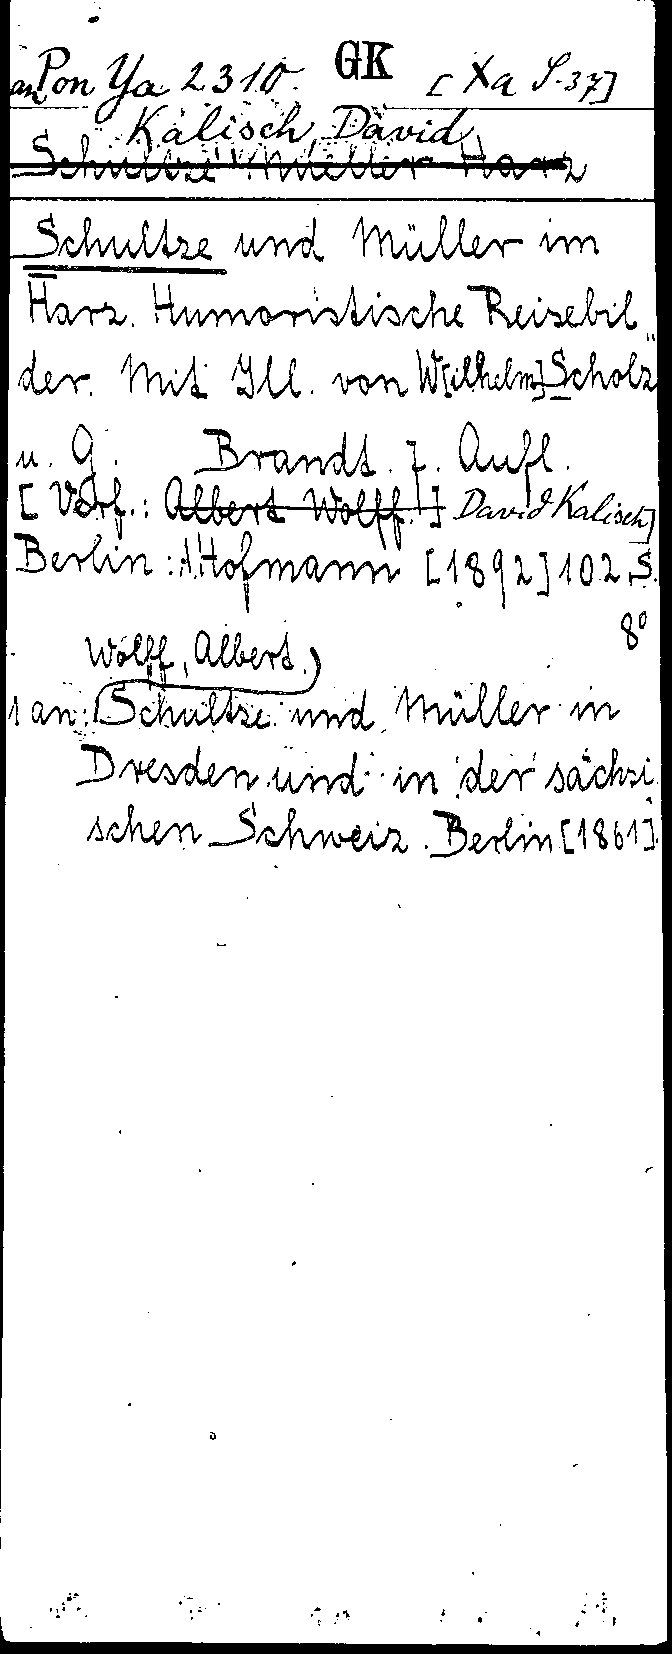 an Pon Ya 2310. GK [Xa S. 37]
Kalisch, David
Schultze Mueller Harz
Schultze und Müller im
Harz. Humoristische Reisebil
der. Mit Ill. von W[ilhelm] Scholz
u. G. Brandt. 7. Aufl.
[Verf.: Albert Wolff.] David Kalisch]
Berlin: Hofmann [1892] 102 S.
8°
Wolff, Albert.)
1 an: Schultze und Müller in
Dresden und in der sächsi
schen Schweiz. Berlin [1861].